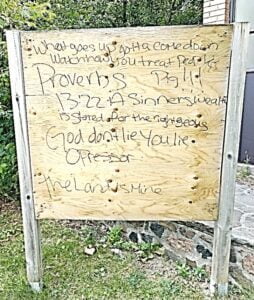 What goes up gotta come down
Watch how you treat People
Proverbs Pg!!!
13:22 A Sinners wealth
is stored for the righteous
God don't lie You lie
Opressor
The Land is Mine